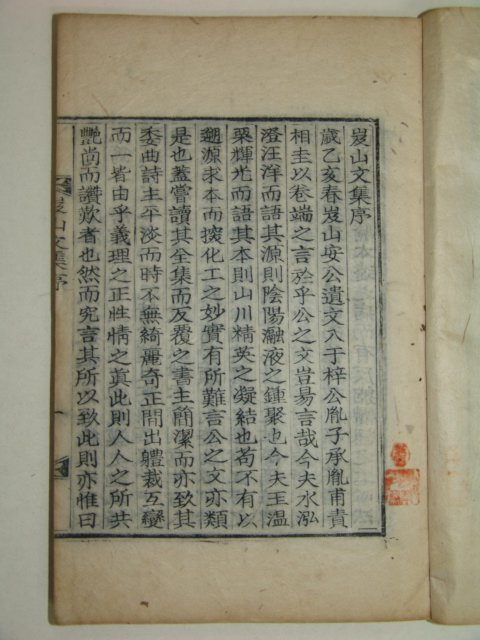 岌山文集序
歲乙亥春岌山安公遺文入于梓公胤子承胤甫責
相圭以卷端之言於乎公之文豈易言哉今夫水泓
澄汪洋而語其源則陰陽瀜液之鍾聚也今夫玉溫
栗輝光而語其本則山川精英之凝結也苟不有以
遡源求本而摸化工之妙實有所難言公之文亦類
是也蓋嘗讀其全集而反覆之書主簡潔而亦致其
委曲詩主平淡而時不無綺麗奇正閒出軆裁互變
而一皆由乎義理之正性情之眞此則人人之所共
艷尙而讚歎者也然而究言其所以致此則亦惟曰
岌山文集序